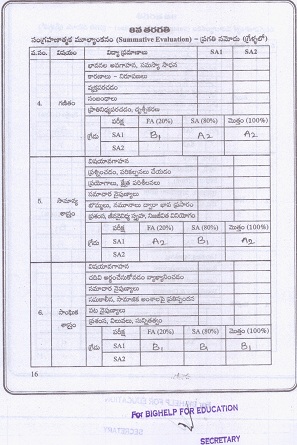 8వ తరగతి
సంగ్రహణాత్మక మూల్యాంకనం (Summative Evaluation) – ప్రగతి నమోదు (గ్రేళ్ళలో)
వ.సం. విషయం విద్యా ప్రమాణాలు SA1 SA2
4. గణితం
భావనల అవగాహన, సమస్యా సాధన
కారణాలు - నిరూపణలు
వ్యక్తపరచడం
సంబంధాలు
ప్రాతినిధ్యపరచడం, దృశ్యీకరణ
గ్రేడు పరీక్ష FA (20%) SA (80%) మొత్తం (100%)
SA1 B1 A2 A2
SA2
5. సామాన్య శాస్త్రం
విషయావగాహన
ప్రశ్నించడం, పరికల్పనలు చేయడం
ప్రయోగాలు, క్షేత్ర పరిశీలనలు
సమాచార నైపుణ్యాలు
బొమ్మలు, నమూనాల ద్వారా భావ ప్రసారం
ప్రశంస, జీవవైవిధ్య స్పృహ, నిజజీవిత వినియోగం
గ్రేడు పరీక్ష FA (20%) SA (80%) మొత్తం (100%)
SA1 A2 B1 A2
SA2
6. సాంఘిక శాస్త్రం
విషయావగాహన
చదివి అర్థంచేసుకోవడం వ్యాఖ్యానించడం
సమాచార నైపుణ్యాలు
సమకాలీన, సామాజిక అంశాలపై ప్రతిస్పందన
పట నైపుణ్యాలు
ప్రశంస, విలువలు, సున్నితత్వం
గ్రేడు పరీక్ష FA (20%) SA (80%) మొత్తం (100%)
SA1 B1 B1 B1
SA2
16
For BIGHELP FOR EDUCATION
SECRETARY